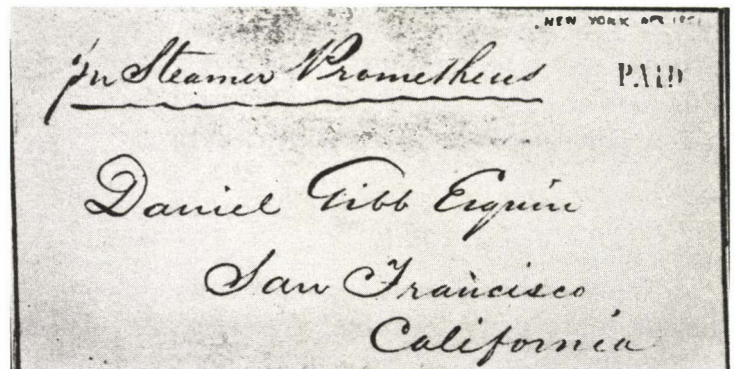 NEW YORK APR
PAID
pr Steamer Prometheus
Daniel Gibb Esquire
San Francisco
California